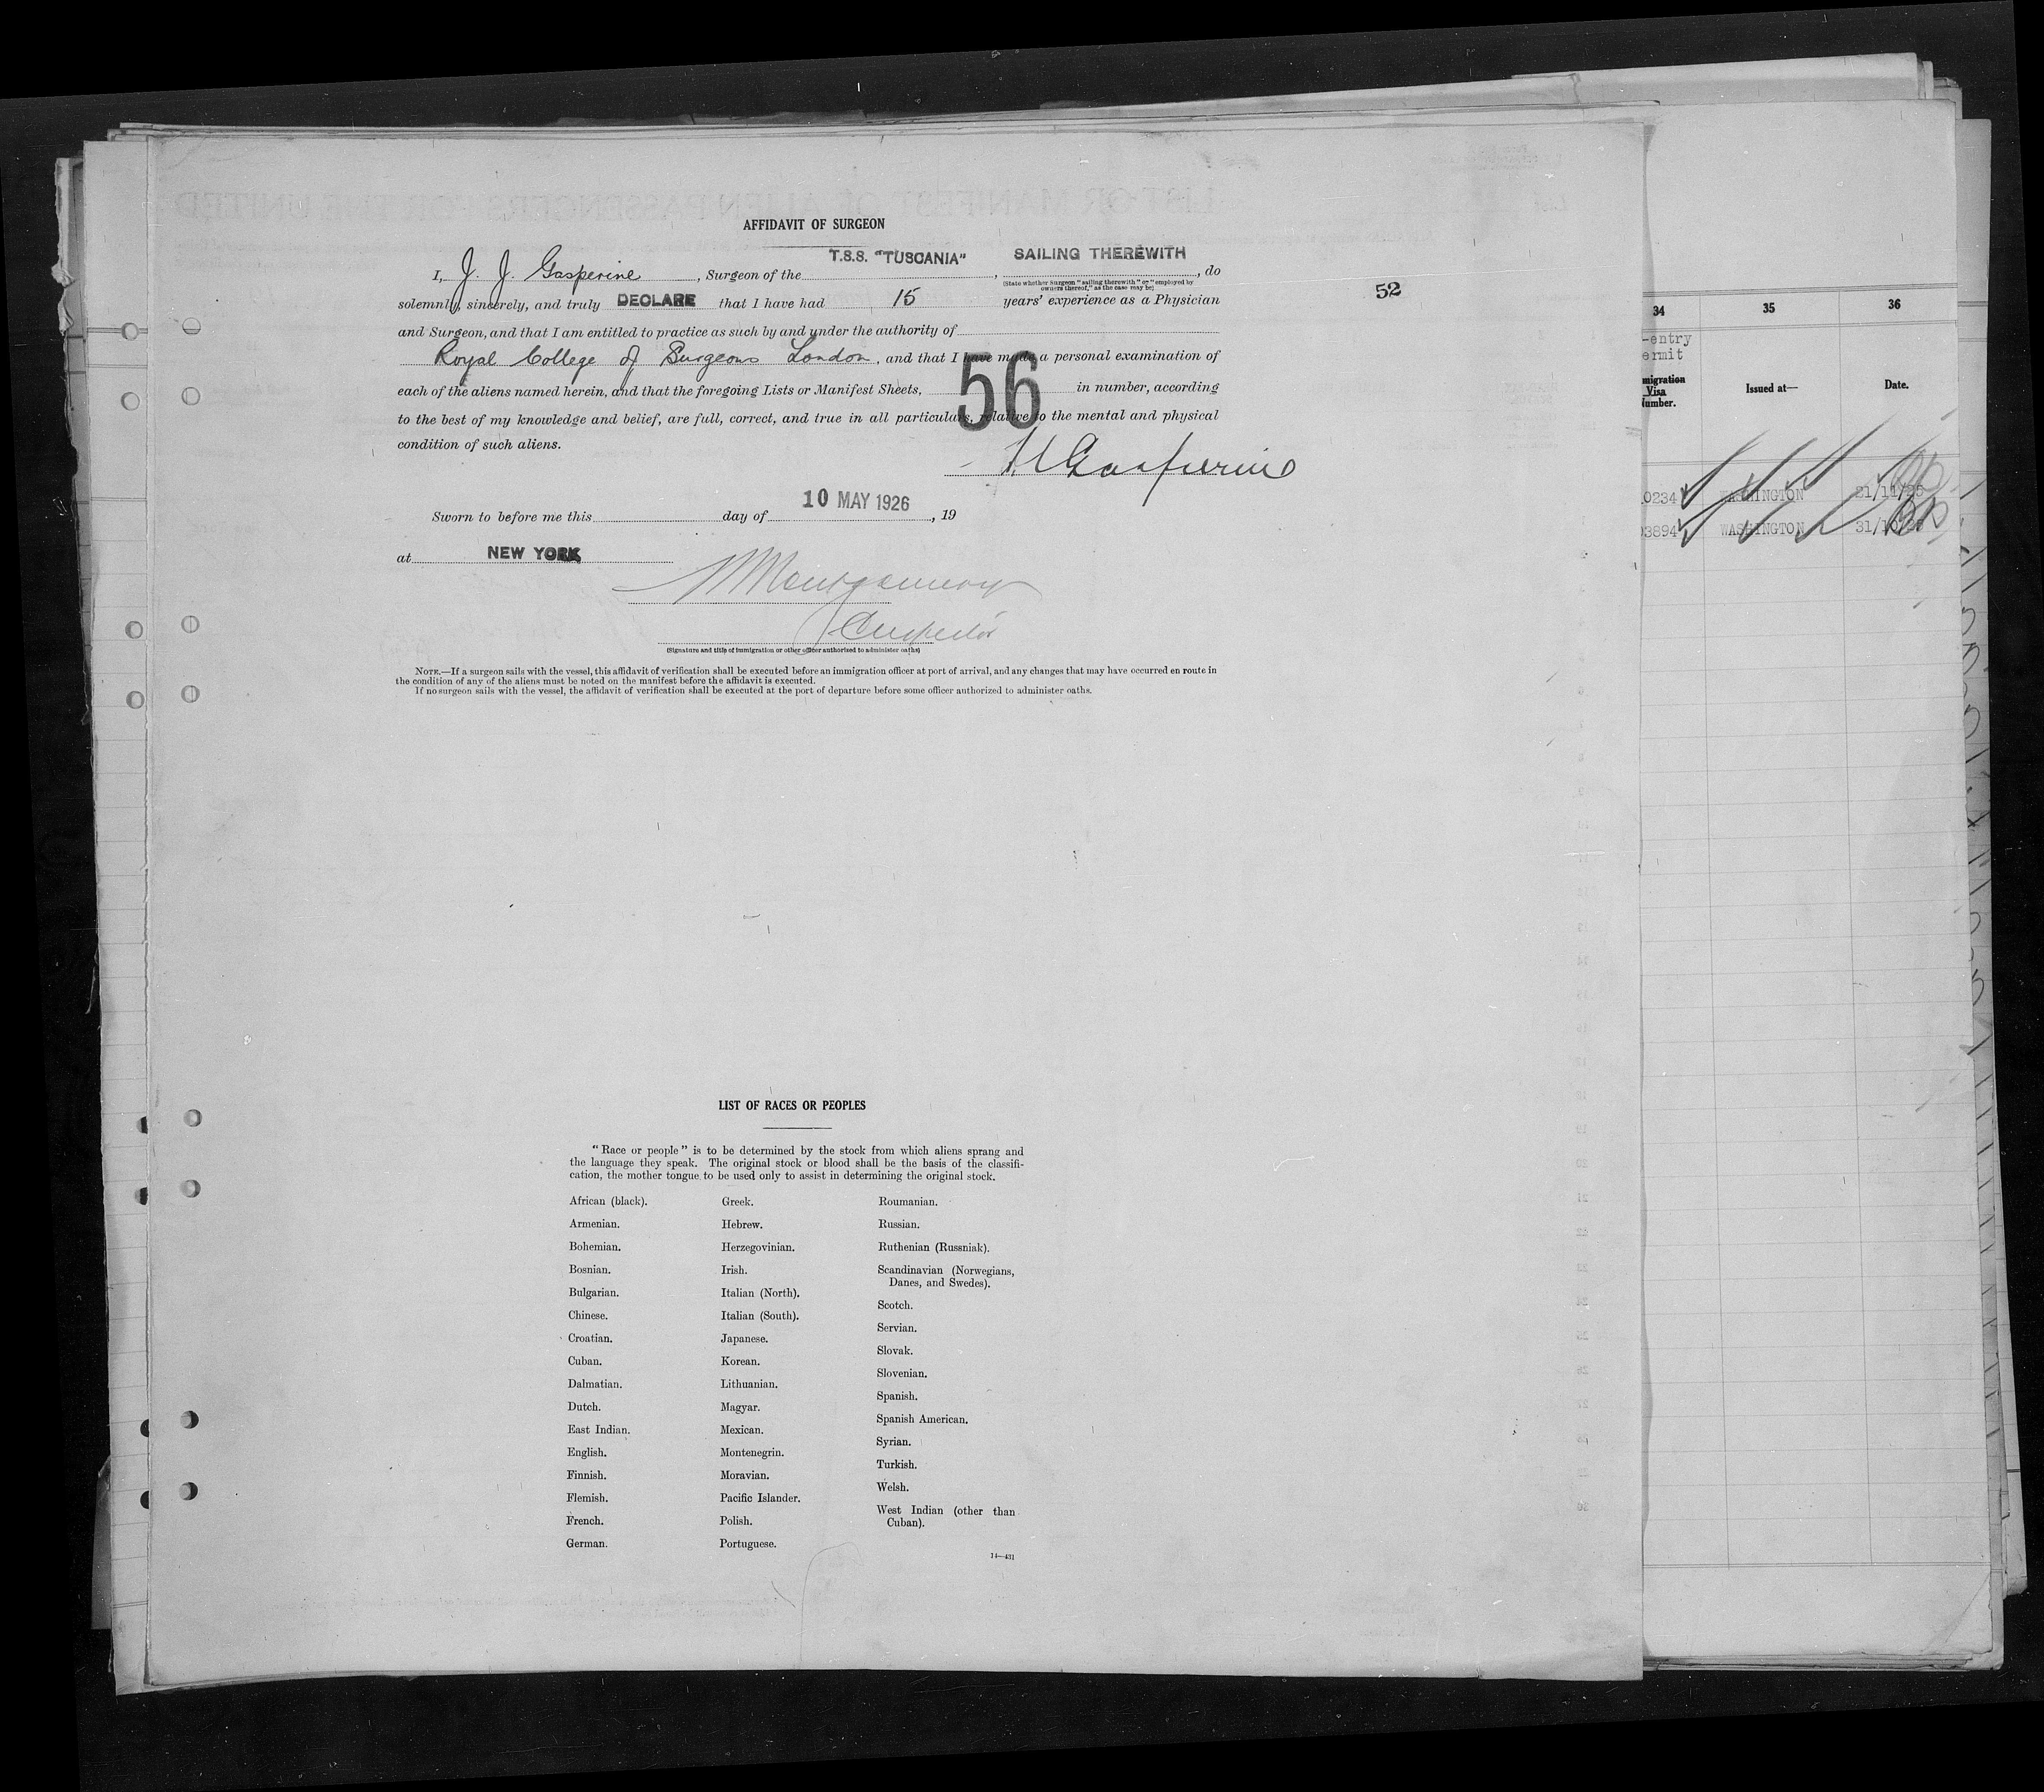 AFFIDAVIT OF SURGEON
I, J. J. Gasperine, Surgeon of the T.S.S. "TUSCANIA", SAILING THEREWITH, do
(State whether Surgeon "sailing therewith" or "employed by
owners thereof," as the case may be)
solemnly, sincerely, and truly DECLARE that I have had 15 years' experience as a Physician
52
and Surgeon, and that I am entitled to practice as such by and under the authority of
Royal College of Surgeons London, and that I have made a personal examination of
each of the aliens named herein, and that the foregoing Lists or Manifest Sheets, 56 in number, according
to the best of my knowledge and belief, are full, correct, and true in all particulars, relative to the mental and physical
condition of such aliens.
Gasperine
Sworn to before me this day of 10 MAY 1926, 19
at NEW YORK
Montgomery
Inspector
(Signature and title of immigration or other officer authorized to administer oaths)
NOTE.—If a surgeon sails with the vessel, this affidavit of verification shall be executed before an immigration officer at port of arrival, and any changes that may have occurred en route in
the condition of any of the aliens must be noted on the manifest before the affidavit is executed.
If no surgeon sails with the vessel, the affidavit of verification shall be executed at the port of departure before some officer authorized to administer oaths.
LIST OF RACES OR PEOPLES
"Race or people" is to be determined by the stock from which aliens sprang and
the language they speak. The original stock or blood shall be the basis of the classifi-
cation, the mother tongue to be used only to assist in determining the original stock.
African (black).
Armenian.
Bohemian.
Bosnian.
Bulgarian.
Chinese.
Croatian.
Cuban.
Dalmatian.
Dutch.
East Indian.
English.
Finnish.
Flemish.
French.
German.
Greek.
Hebrew.
Herzegovinian.
Irish.
Italian (North).
Italian (South).
Japanese.
Korean.
Lithuanian.
Magyar.
Mexican.
Montenegrin.
Moravian.
Pacific Islander.
Polish.
Portuguese.
Roumanian.
Russian.
Ruthenian (Russniak).
Scandinavian (Norwegians,
Danes, and Swedes).
Scotch.
Servian.
Slovak.
Slovenian.
Spanish.
Spanish American.
Syrian.
Turkish.
Welsh.
West Indian (other than
Cuban).
14—431
34 35 36
-entry
ermit
migration
Visa
umber.
Issued at—
Date.
0234 WASHINGTON 21/11/25
03894 WASHINGTON 31/10/25